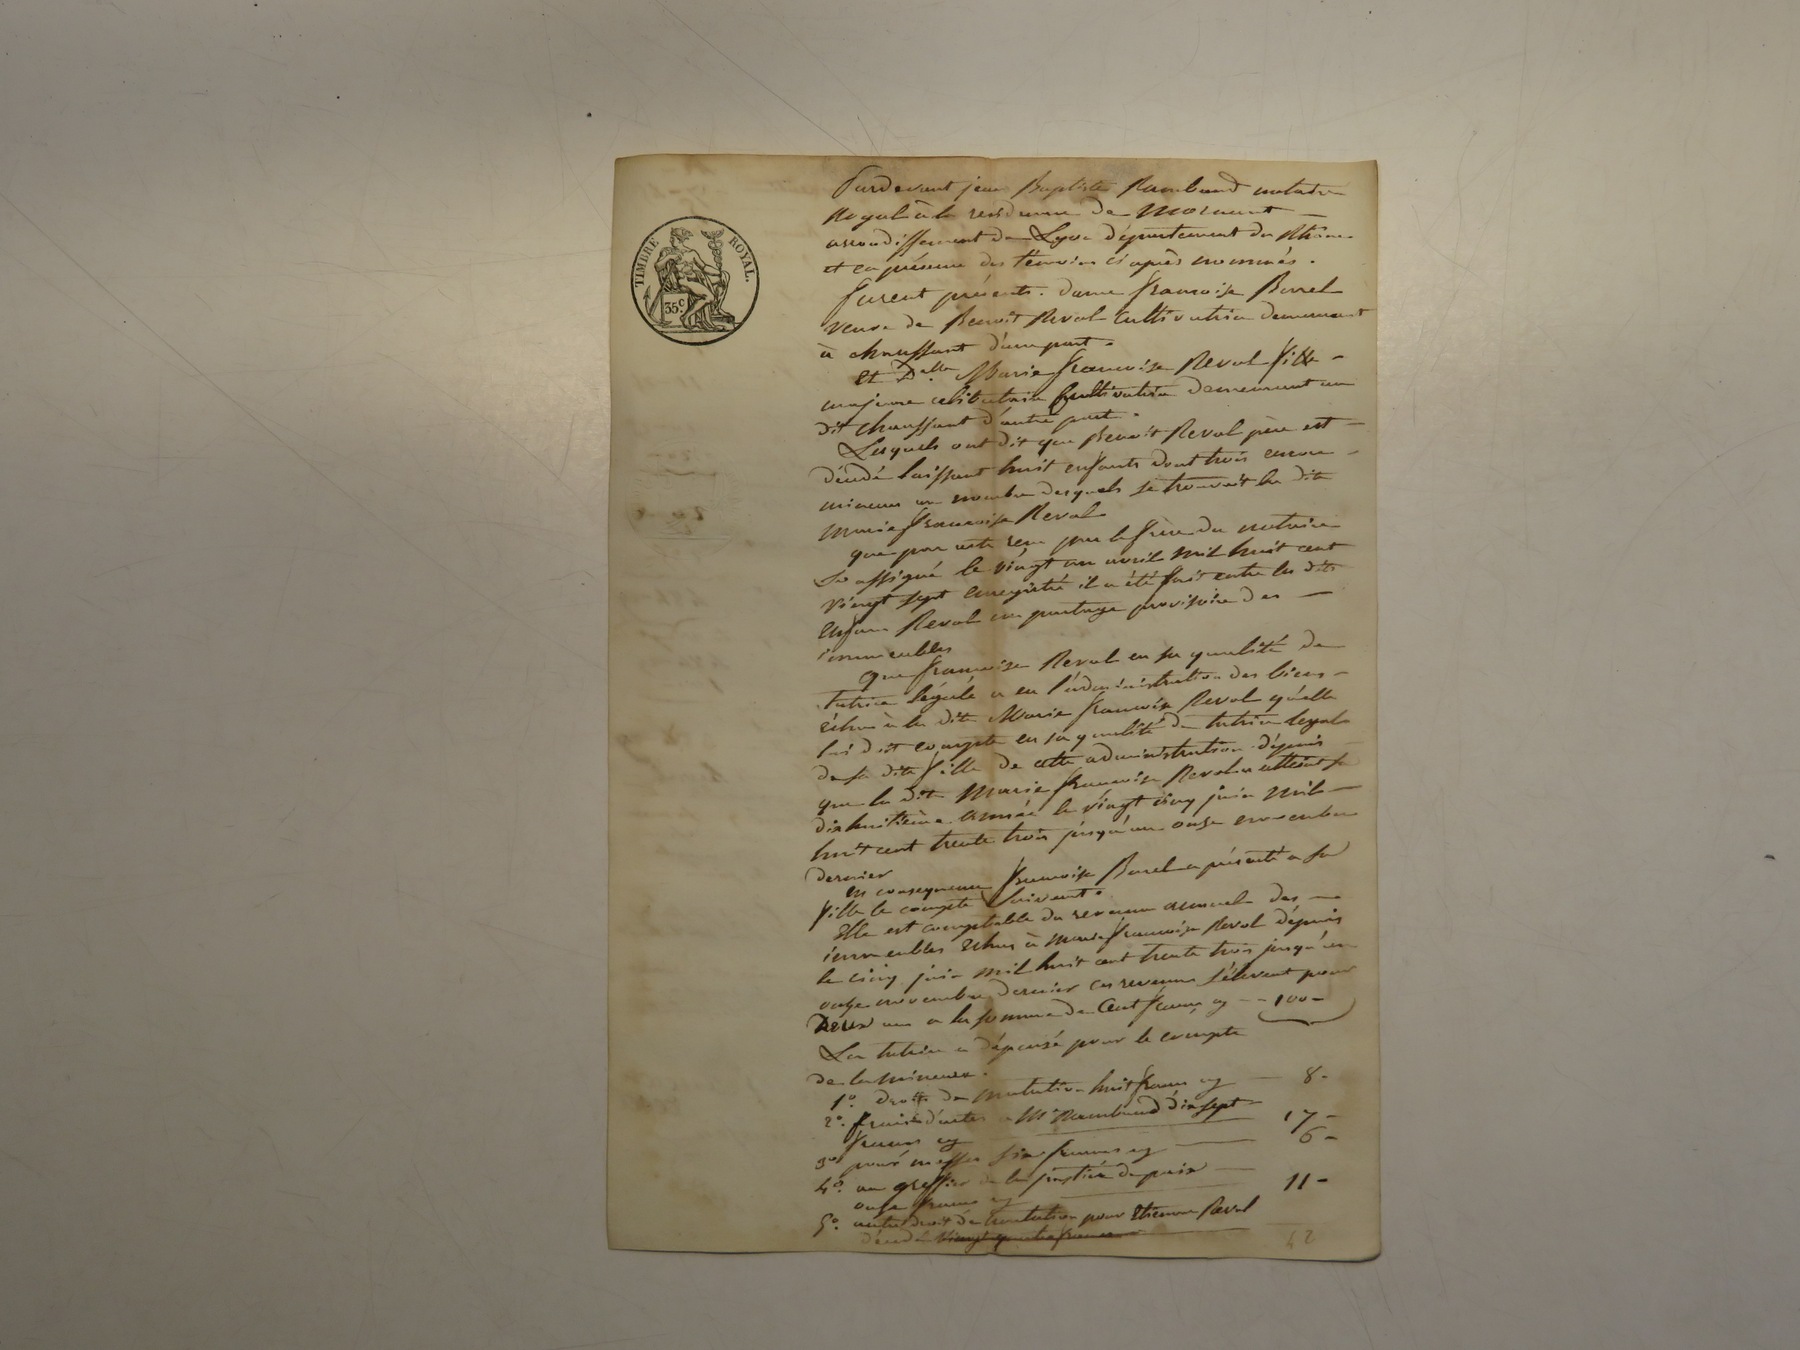 TIMBRE ROYAL.
35 c.
Pardevant jean Baptiste Rambaud notaire
Royal à la residence de Mornant
arrondissement de Lyon département du Rhône
et en présence des temoins ci après nommés.
furent présents. dame françoise Borel
veuve de Benoît Reval cultivatrice demeurant
à chaussant d'une part.
Et Delle Marie françoise Reval fille
majeure celibataire cultivatrice demeurant au
dit chaussant d'autre part.
Lesquels ont dit que Benoit Reval père est
décédé laissant huit enfants dont trois encore
mineurs au nombre desquels se trouvait la dite
Marie françoise Reval
que par acte reçu par le frère du notaire
So ussigné le vingt un avril mil huit cent
vingt sept enregistré il a été fait entre les dits
enfans Reval un partage provisoire des
immeubles
que françoise Reval en sa qualité de
tutrice légale a eu l'administration des biens
échus à la dite Marie françoise Reval qu'elle
lui doit compte en sa qualité de tutrice legale
de sa dite fille de cette administration dépuis
que la dite Marie françoise Reval a atteint sa
dix huitième année le vingt cinq juin mil
huit cent trente trois jusqu'au onze novembre
dernier
En consequence françoise Borel a présenté a sa
fille le compte suivant.
Elle est comptable du revenu annuel des
immeubles echus à Marie françoise Reval dépuis
le cinq juin mil huit cent trente trois jusqu'au
onze novembre dernier ces revenus s'élevent pour
Deux ans a la somme de Cent francs cy 100
La tutrice a dépensé pour le compte
de la mineure.
1o. droits de mutation huit francs cy 8
2o. frais d'actes a Me Rambaud dix sept
francs cy 17
3o pour messes six francs cy 6
4o. au greffier de la justice de paix
onze francs cy 11
5o. autre droit de mutation pour Etienne Reval
décédé vingt quatre francs
42